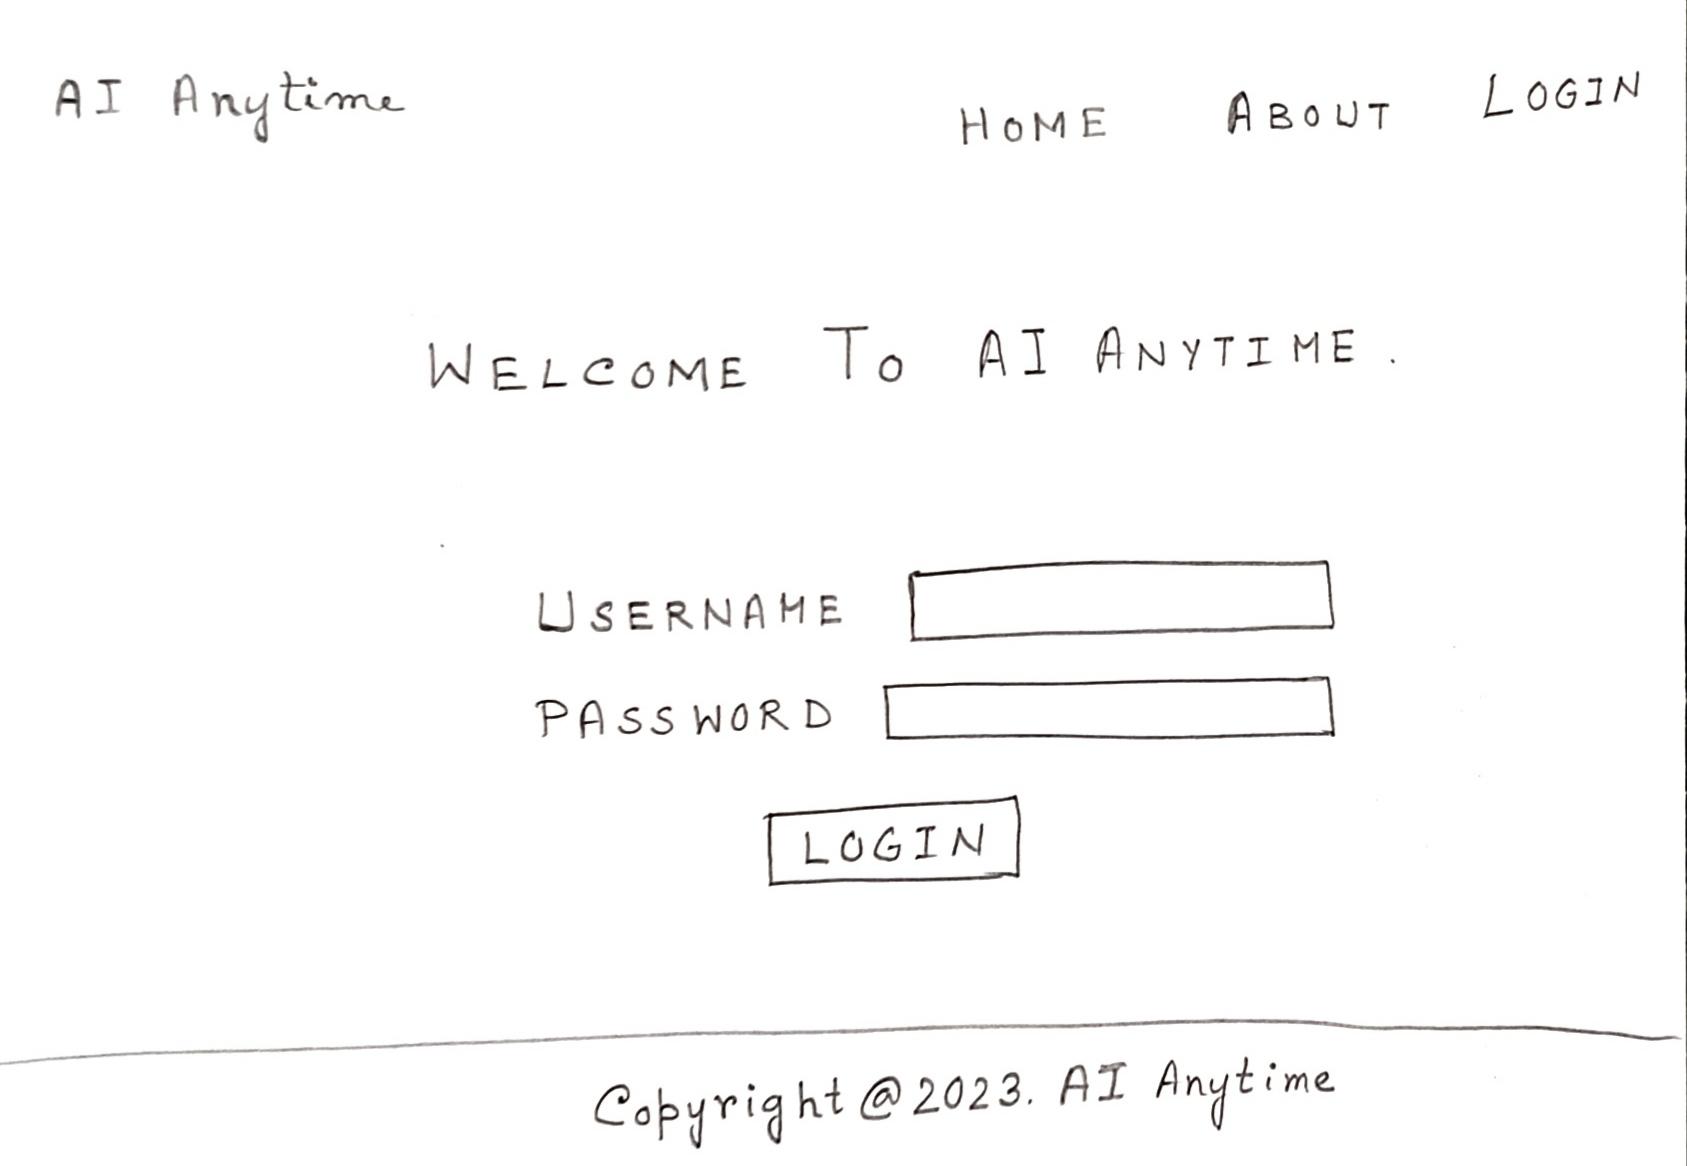 AI Anytime
HOME ABOUT LOGIN
WELCOME TO AI ANYTIME.
USERNAME
PASSWORD
LOGIN
Copyright @ 2023. AI Anytime